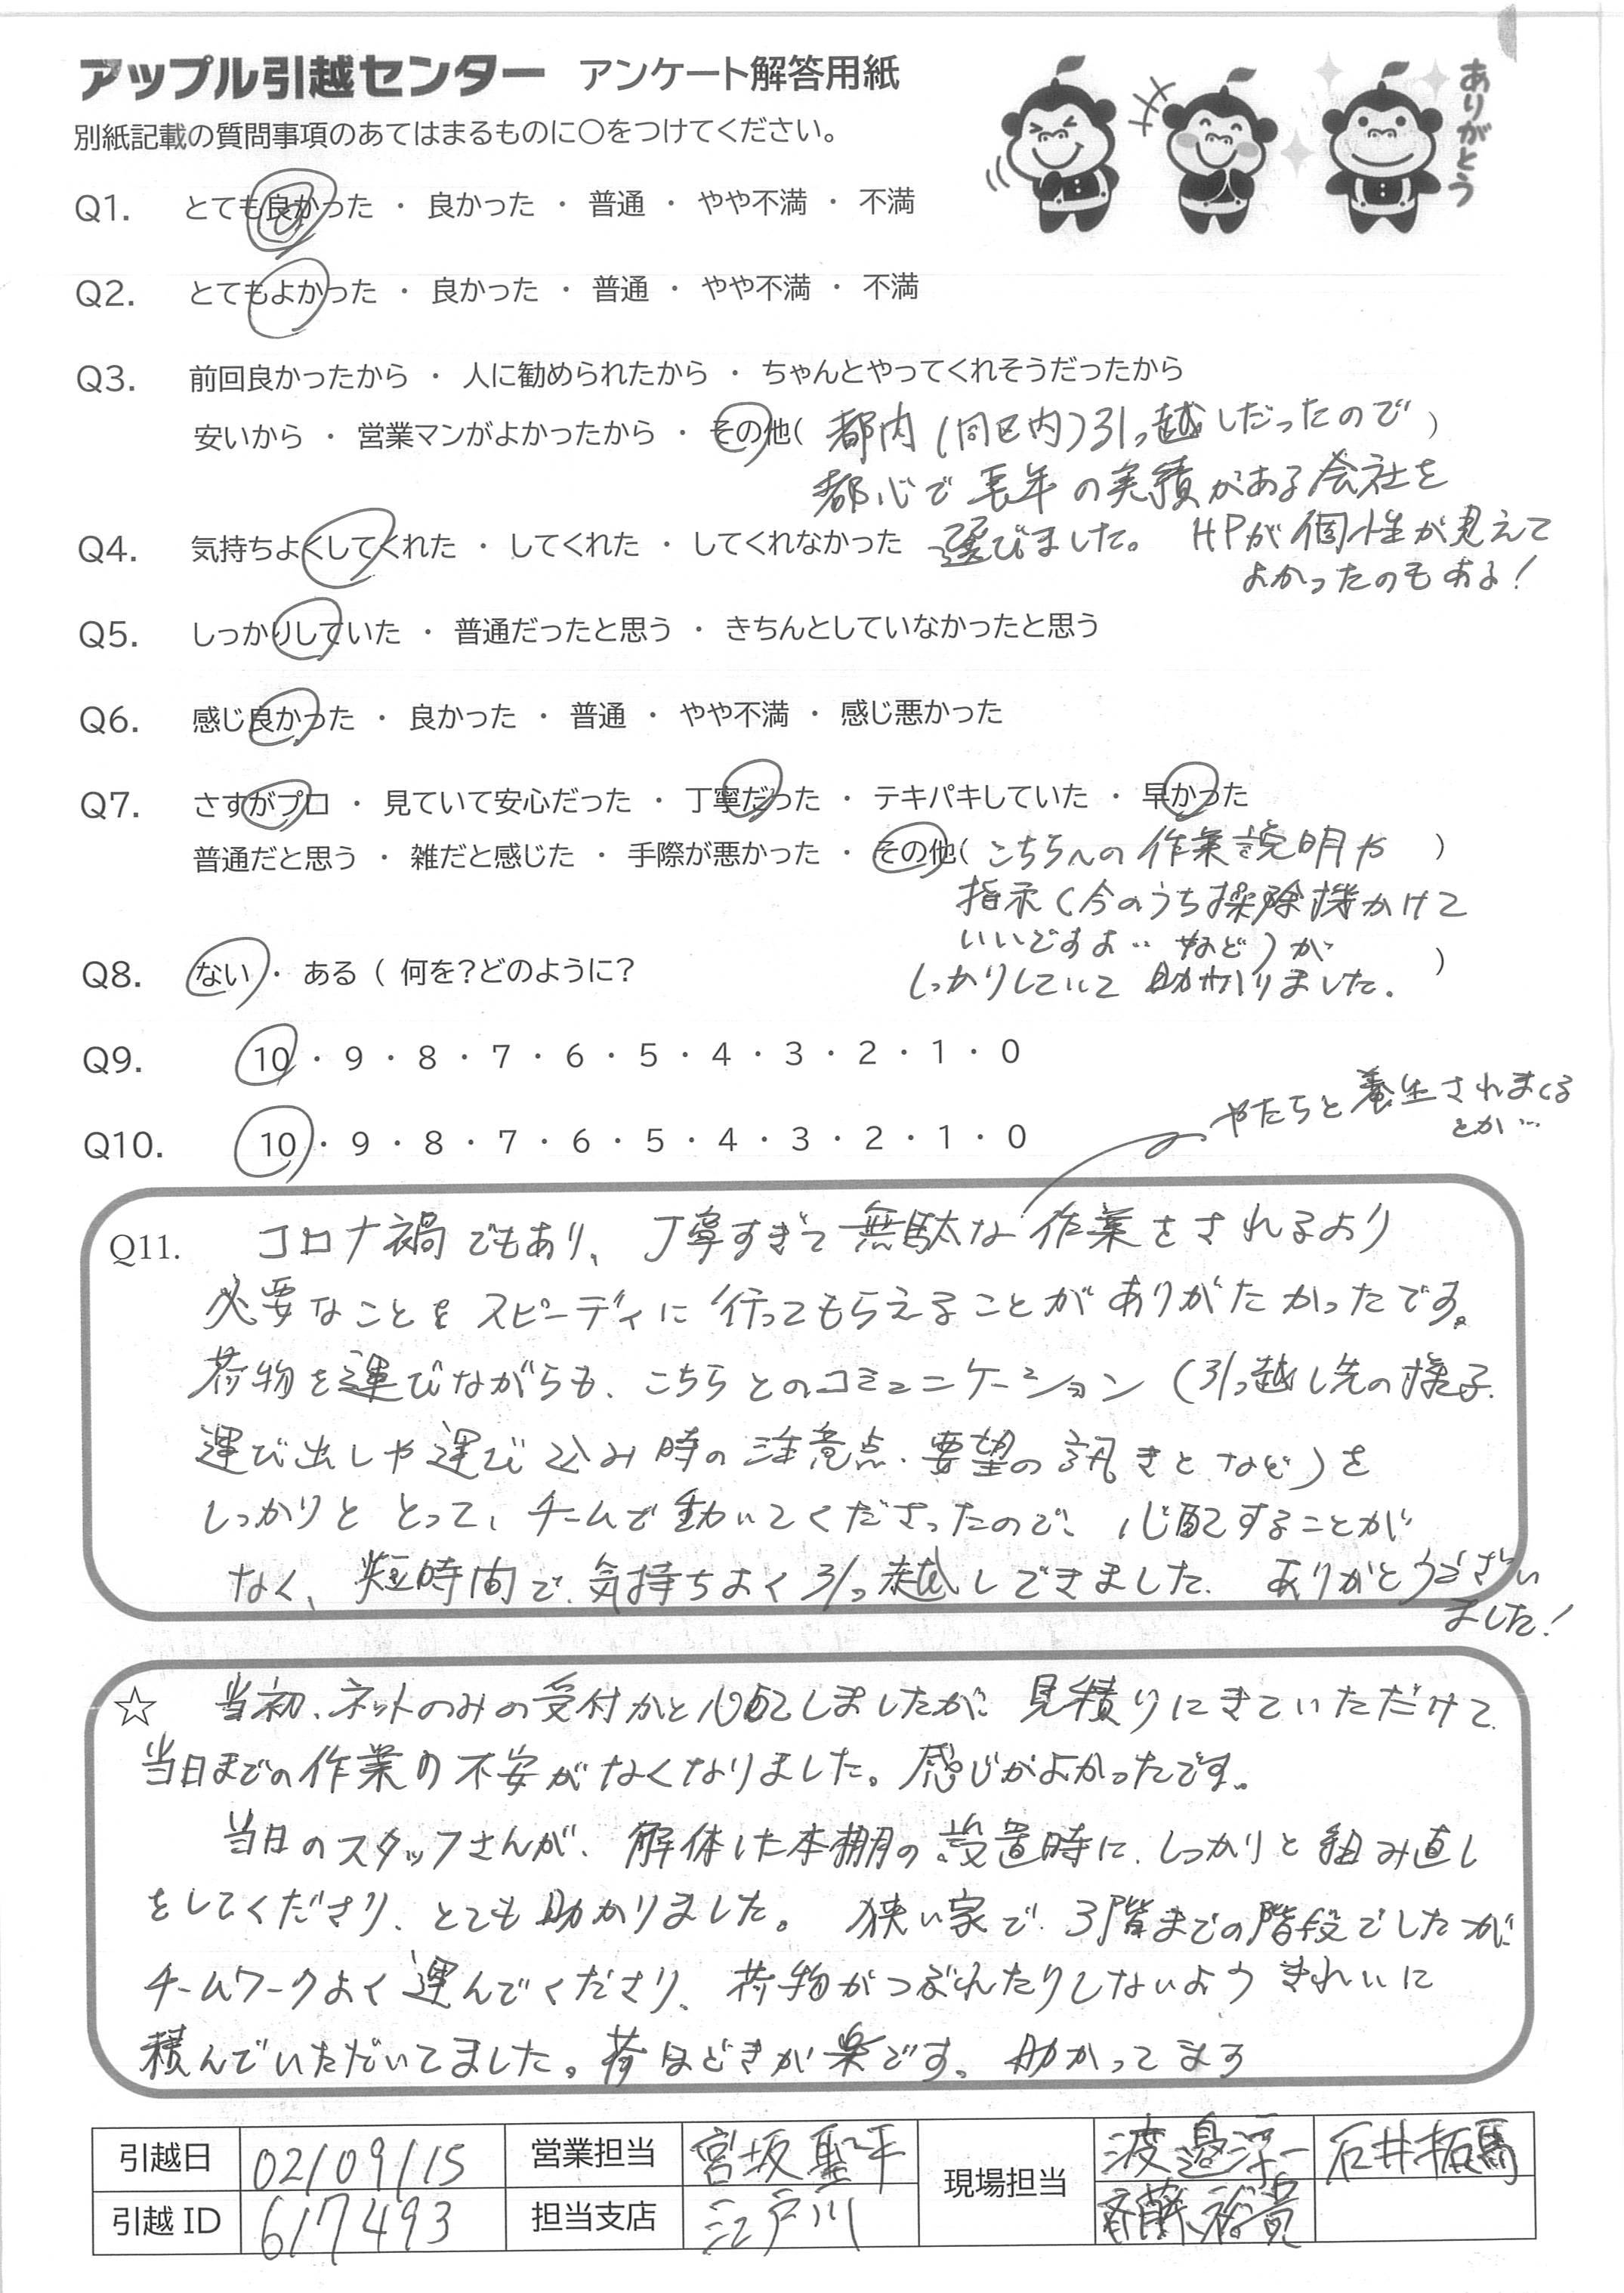 アップル引越センター アンケート解答用紙
ありがとう
別紙記載の質問事項のあてはまるものに〇をつけてください。
Q1. とても良かった ・ 良かった ・ 普通 ・ やや不満 ・ 不満
Q2. とてもよかった ・ 良かった ・ 普通 ・ やや不満 ・ 不満
Q3. 前回良かったから ・ 人に勧められたから ・ ちゃんとやってくれそうだったから
安いから ・ 営業マンがよかったから ・ その他( 都内(同区内)引っ越しだったので )
都心で長年の実績がある会社を
Q4. 気持ちよくしてくれた ・ してくれた ・ してくれなかった 選びました。 HPが個性が見えて
よかったのもある!
Q5. しっかりしていた ・ 普通だったと思う ・ きちんとしていなかったと思う
Q6. 感じ良かった ・ 良かった ・ 普通 ・ やや不満 ・ 感じ悪かった
Q7. さすがプロ ・ 見ていて安心だった ・ 丁寧だった ・ テキパキしていた ・ 早かった
普通だと思う ・ 雑だと感じた ・ 手際が悪かった ・ その他( こちらへの作業説明や )
指示(今のうち掃除機かけて
いいですよ‥ など)が
Q8. ない ・ ある ( 何を?どのように? )
しっかりしていて 助かりました.
Q9. 10 ・ 9 ・ 8 ・ 7 ・ 6 ・ 5 ・ 4 ・ 3 ・ 2 ・ 1 ・ 0
やたらと養生されまくる
とか…
Q10. 10 ・ 9 ・ 8 ・ 7 ・ 6 ・ 5 ・ 4 ・ 3 ・ 2 ・ 1 ・ 0
Q11. コロナ禍でもあり、丁寧すぎて無駄な作業をされるより
必要なことをスピーディに行ってもらえることがありがたかったです。
荷物を運びながらも、こちらとのコミュニケーション (引っ越し先の様子、
運び出しや運び込み時の注意点、要望の訊きとなど)を
しっかりと とって、チームで動いてくださったので、心配することが
なく、短時間で、気持ちよく引っ越しできました. ありがとうござい
ました!
☆ 当初、ネットのみの受付かと心配しましたが、見積りにきていただけて、
当日までの作業の不安がなくなりました。感じがよかったです。
当日のスタッフさんが、解体した本棚の設置時に、しっかりと組み直し
をしてくださり、とても助かりました。 狭い家で、3階までの階段でしたが、
チームワークよく運んでくださり、荷物がつぶれたりしないようきれいに
積んでいただいてました。荷ほどきが楽です。助かってます
引越日 02/09/15 営業担当 宮坂聖平 現場担当 渡邉淳一 石井拓馬
引越 ID 617493 担当支店 江戸川 斉藤裕貴